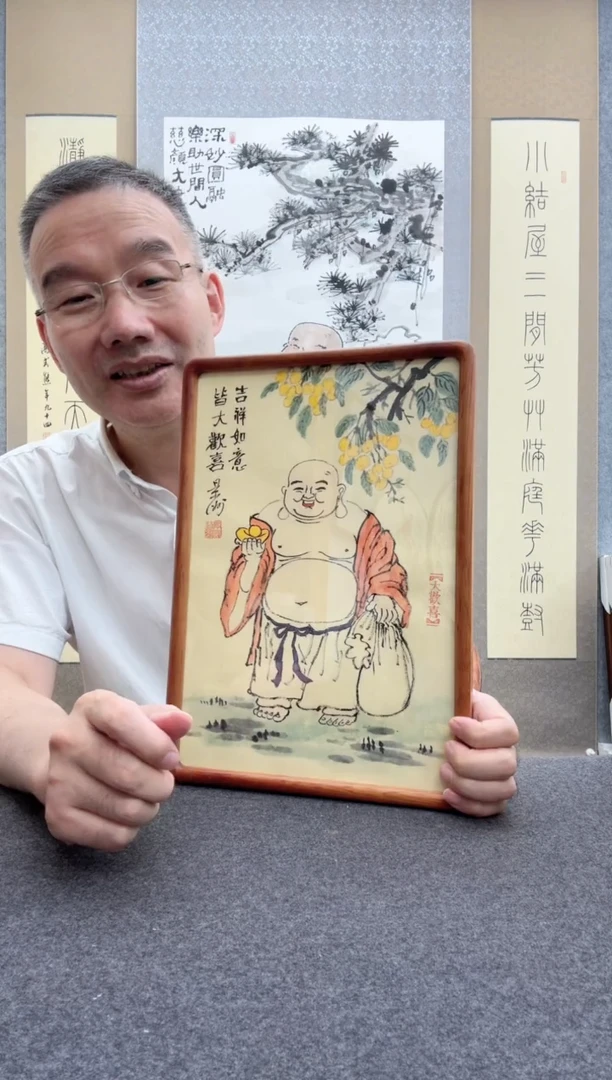 深妙圓融
樂助世間人
慈顏大
吉祥如意
皆大歡喜
大歡喜
小結屋三間芳艸滿庭華滿